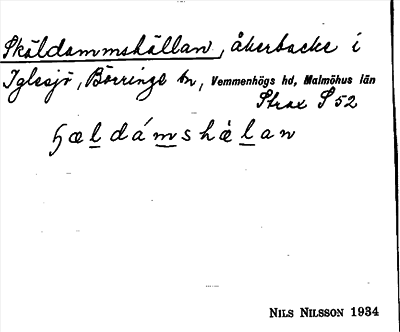 Sköldammshällan, åkerbacke i
Iglesjö, Börringe sn, Vemmenhögs hd, Malmöhus län
Strax S 52
ɧœldámshàlan
NILS NILSSON 1934